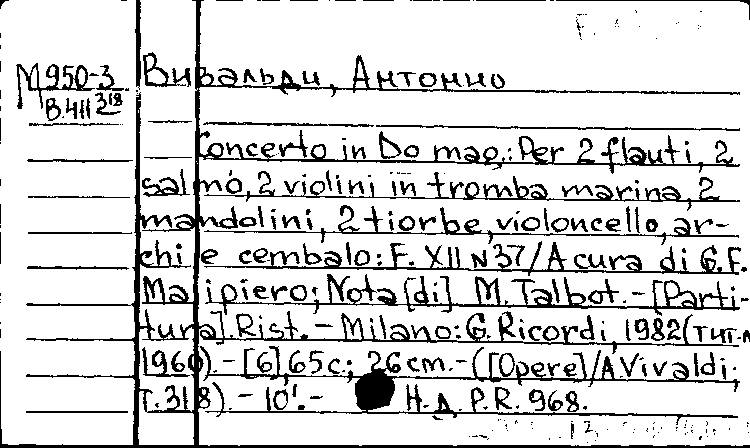 М950-3 Вивальди, Антонио
В.411 318
Concerto in Do mag.: Per 2 flauti, 2
salmò, 2 violini in tromba marina, 2
mandolini, 2 tiorbe, violoncello, ar-
chi e cembalo: F. XII N37/A cura di G.F.
Malipiero; Nota [di] M. Talbot. - [Parti-
tura]. Rist. - Milano: G. Ricordi, 1982 (тит.л
1960). - [6], 65 c.; 26 cm. - ([Opere]/A Vivaldi;
T. 318). - 10'. - Н.д. P.R. 968.